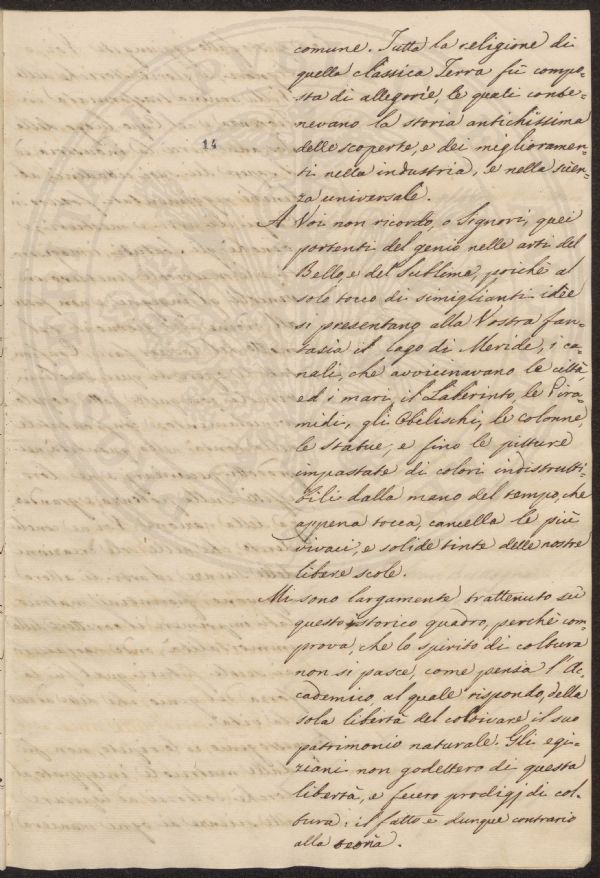 14
comune. Tutta la religione di
quella classica Terra fù compo=
sta di allegorie, le quali conte=
nevano la storia antichissima
delle scoperte, e dei miglioramen=
ti nella industria, e nella scien=
za universale.
A Voi non ricordo, o Signori, quei
portenti del genio nelle arti del
Bello, e del Sublime, poichè al
solo tocco di simiglianti idèe
si presentano alla Vostra fan=
tasia il lago di Meride, i ca=
nali, che avvicinavano le città,
ed i mari, il Laberinto, le Pira=
midi, gli Obelischi, le colonne,
le statue, e fino le pitture
impastate di colori indistrutti=
bili dalla mano del tempo, che
appena tocca, cancella le più
vivaci, e solide tinte delle nostre
libere scole.
Mi sono largamente trattenuto sù
questo istorico quadro, perchè com=
prova, che lo spirito di coltura
non si pasce, come pensa l'Ac=
cademico, al quale rispondo, della
sola libertà del coltivare il suo
patrimonio naturale. Gli egi=
ziani non godettero di questa
libertà, e fecero prodigj di col=
tura: il fatto è dunque contrario
alla teoria.